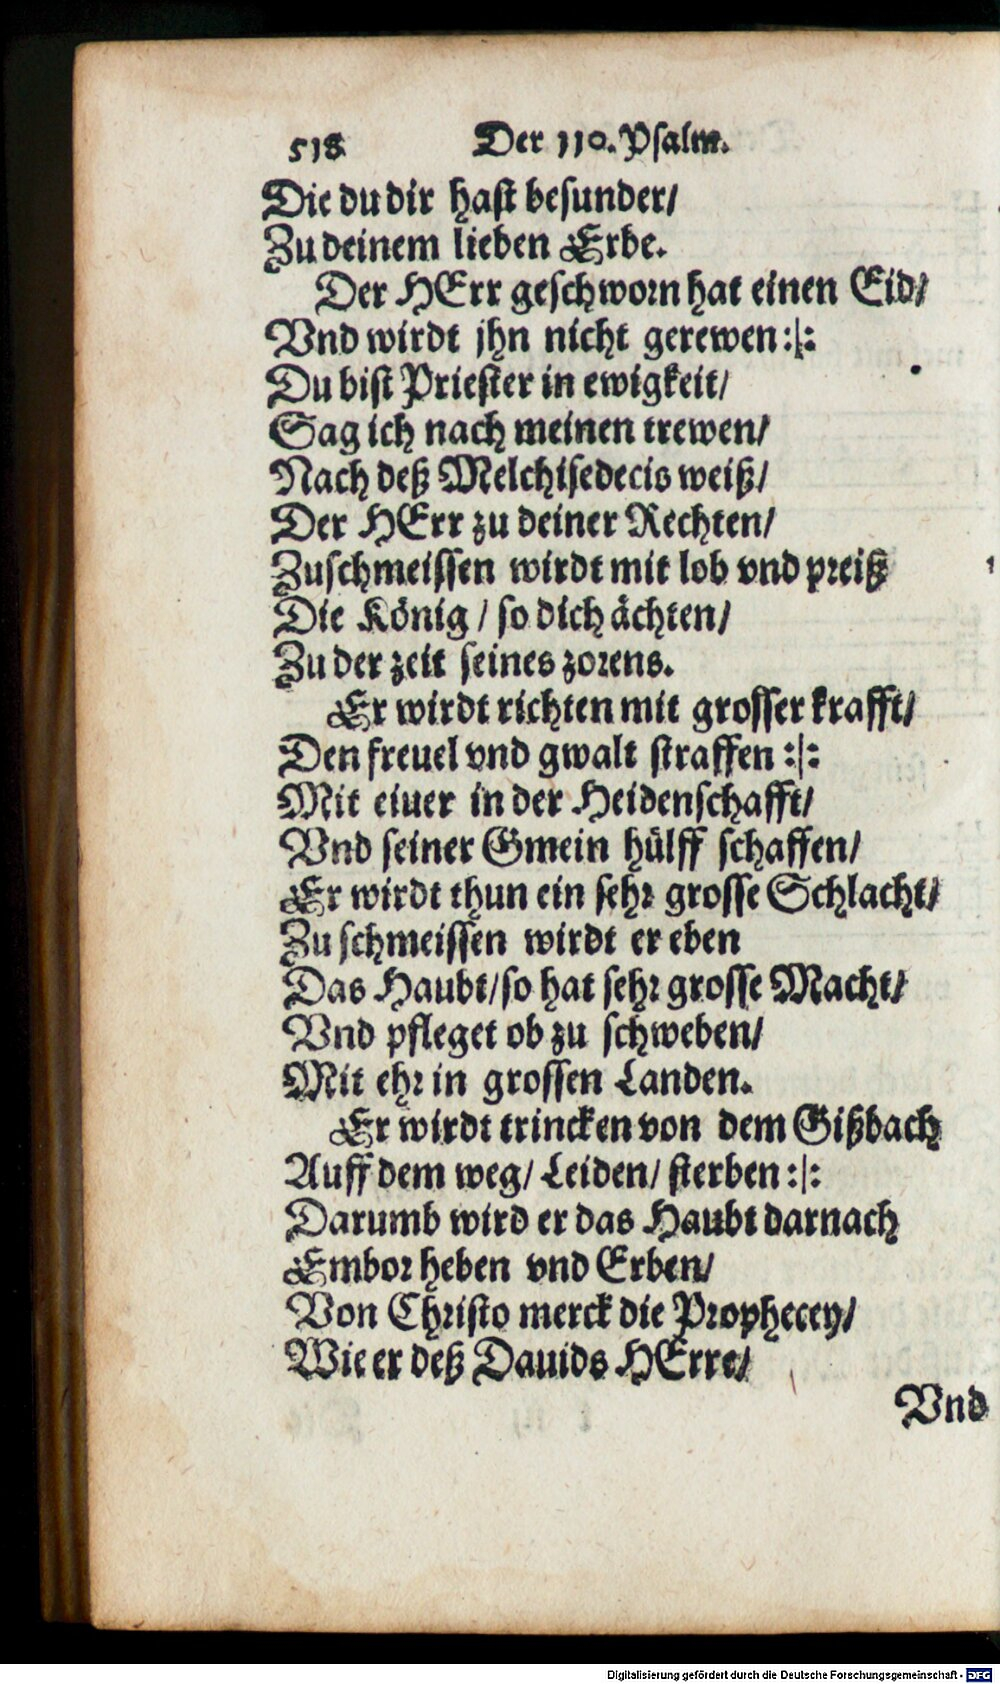 518 Der 110. Psalm.
Die du dir hast besunder/
Zu deinem lieben Erbe.
Der HErr geschworn hat einen Eid/
Vnd wirdt jhn nicht gerewen :|:
Du bist Priester in ewigkeit/
Sag ich nach meinen trewen/
Nach deß Melchisedecis weiß/
Der HErr zu deiner Rechten/
Zuschmeissen wirdt mit lob vnd preiß
Die König / so dich ächten/
Zu der zeit seines zorens.
Er wirdt richten mit grosser krafft/
Den freuel vnd gwalt straffen :|:
Mit eiuer in der Heidenschafft/
Vnd seiner Gmein hülff schaffen/
Er wirdt thun ein sehr grosse Schlacht/
Zu schmeissen wirdt er eben
Das Haubt/ so hat sehr grosse Macht/
Vnd pfleget ob zu schweben/
Mit ehr in grossen Landen.
Er wirdt trincken von dem Gißbach
Auff dem weg/ Leiden/ sterben :|:
Darumb wird er das Haubt darnach
Embor heben vnd Erben/
Von Christo merck die Prophecey/
Wie er deß Dauids HErre/
Vnd
Digitalisierung gefördert durch die Deutsche Forschungsgemeinschaft - DFG